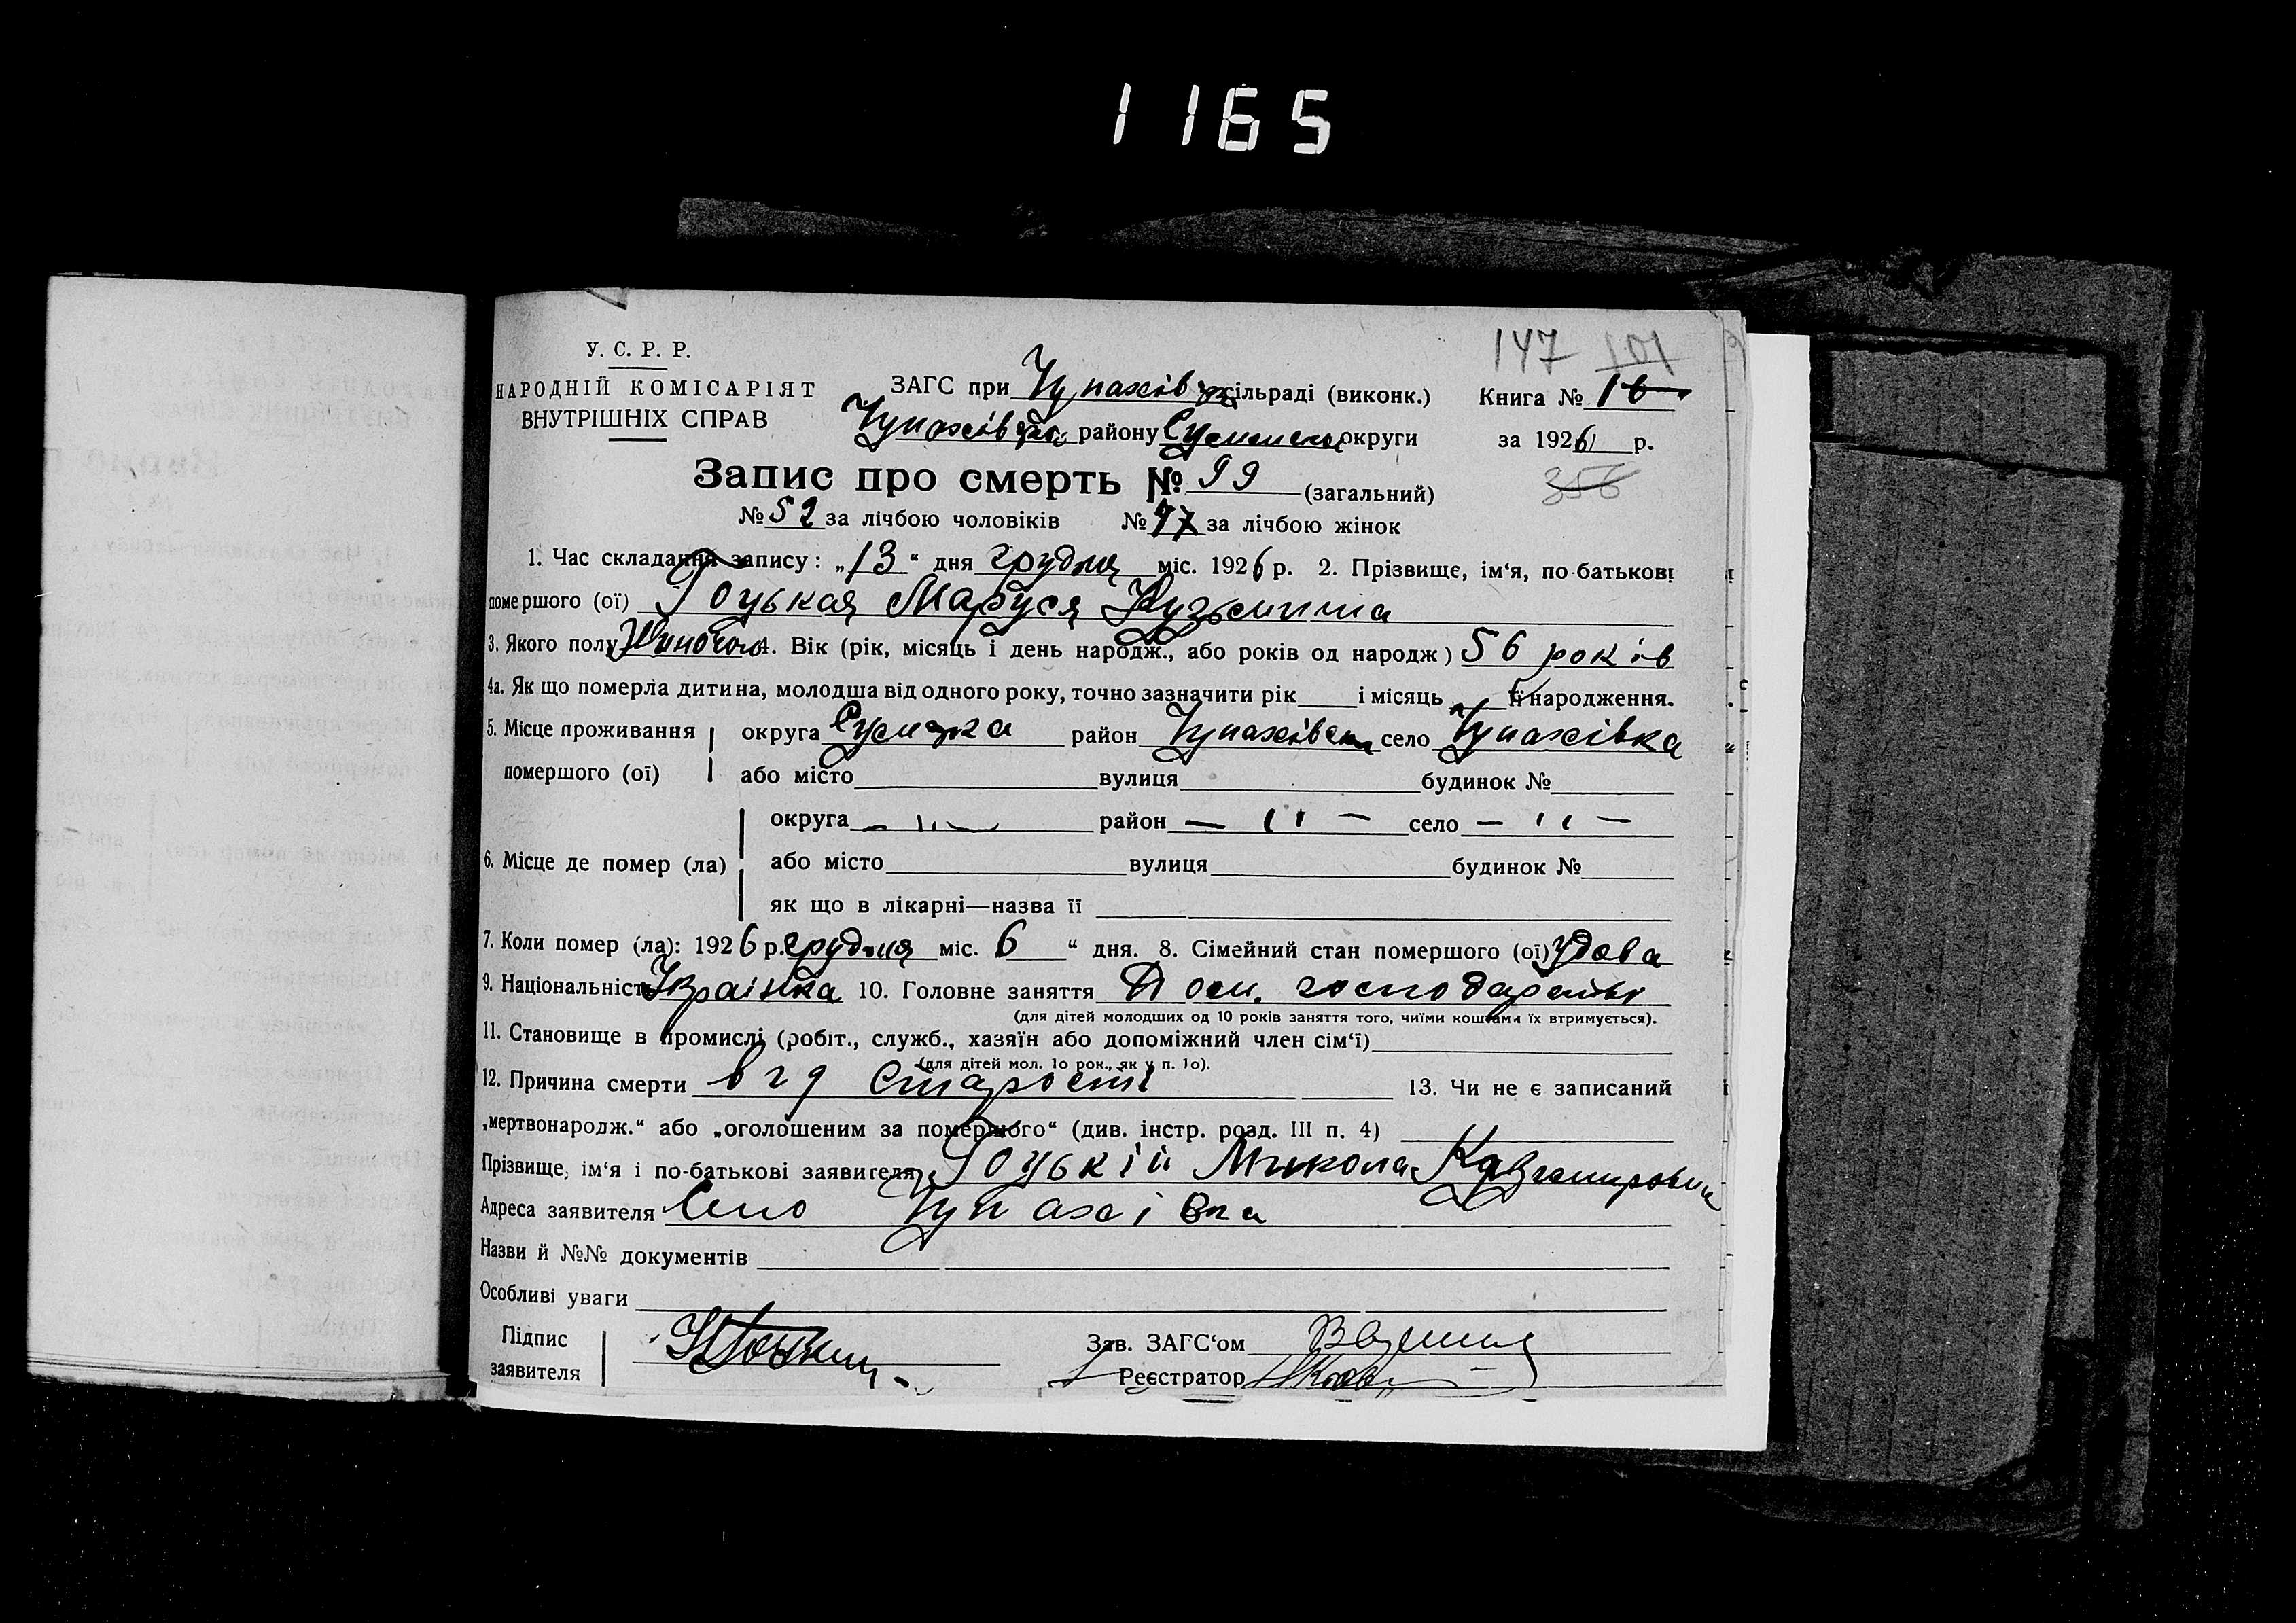 1165
147 101
У. С. Р. Р.
НАРОДНІЙ КОМІСАРІЯТ
ВНУТРІШНІХ СПРАВ
ЗАГС при Чупахівськ. сільраді (виконк.) Книга № 16
Чупахівськ. району Сумської округи за 1926 р.
356
Запис про смерть № 99 (загальний)
№ 52 за лічбою чоловіків № 47 за лічбою жінок
1. Час складання запису: „13“ дня грудня міс. 1926 р. 2. Прізвище, ім‘я, по-батькові
помершого (ої) Гоцькая Маруся Кузьминна
3. Якого полу Жиночого 4. Вік (рік, місяць і день народж., або років од народж) 56 років
4а. Як що померла дитина, молодша від одного року, точно зазначити рік і місяць її народження.
5. Місце проживання помершого (ої) округа Сумська район Чупахівськ село Чупахівка
або місто вулиця будинок №
6. Місце де помер (ла) округа — ıı — район — ıı — село — ıı —
або місто вулиця будинок №
як що в лікарні—назва її
7. Коли помер (ла): 1926 р. грудня міс. 6 “ дня. 8. Сімейний стан помершого (ої) удова
9. Національність Украінка 10. Головне заняття Дом. господарство
(для дітей молодших од 10 років заняття того, чиїми коштами їх втримується).
11. Становище в промислі (робіт., служб., хазяїн або допоміжний член сім‘ї)
(для дітей мол. 1о рок., як у п. 1о).
12. Причина смерти від старости 13. Чи не є записаний
„мертвонародж.“ або „оголошеним за помершого“ (див. інстр. розд. III п. 4)
Прізвище, ім‘я і по-батькові заявителя Гоцькій Микола Казимирович
Адреса заявителя Село Чупахівка
Назви й №№ документів
Особливі уваги
Підпис
заявителя
Зав. ЗАГС‘ом
Реєстратор